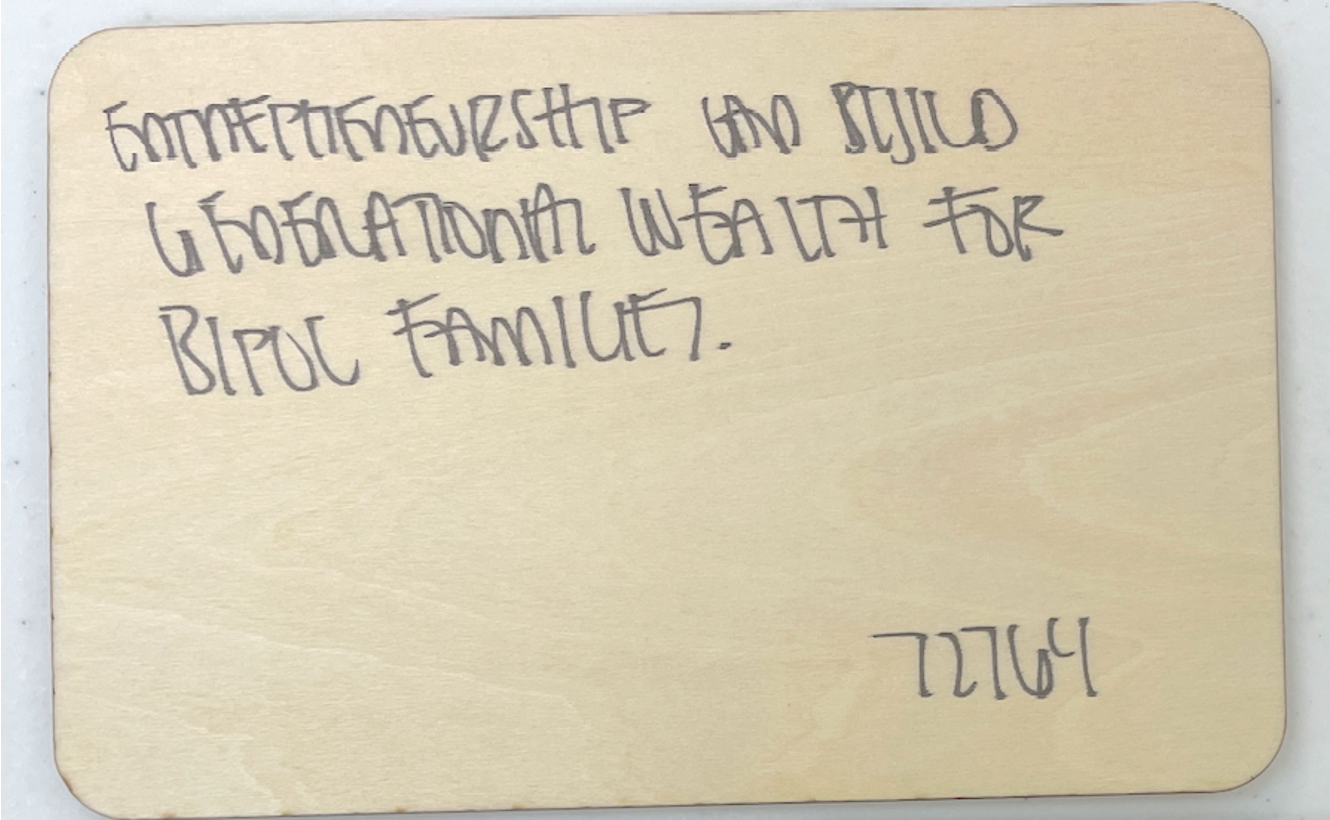 ENTREPRENEURSHIP CAN BUILD
GENERATIONAL WEALTH FOR
BIPOC FAMILIES.
72764